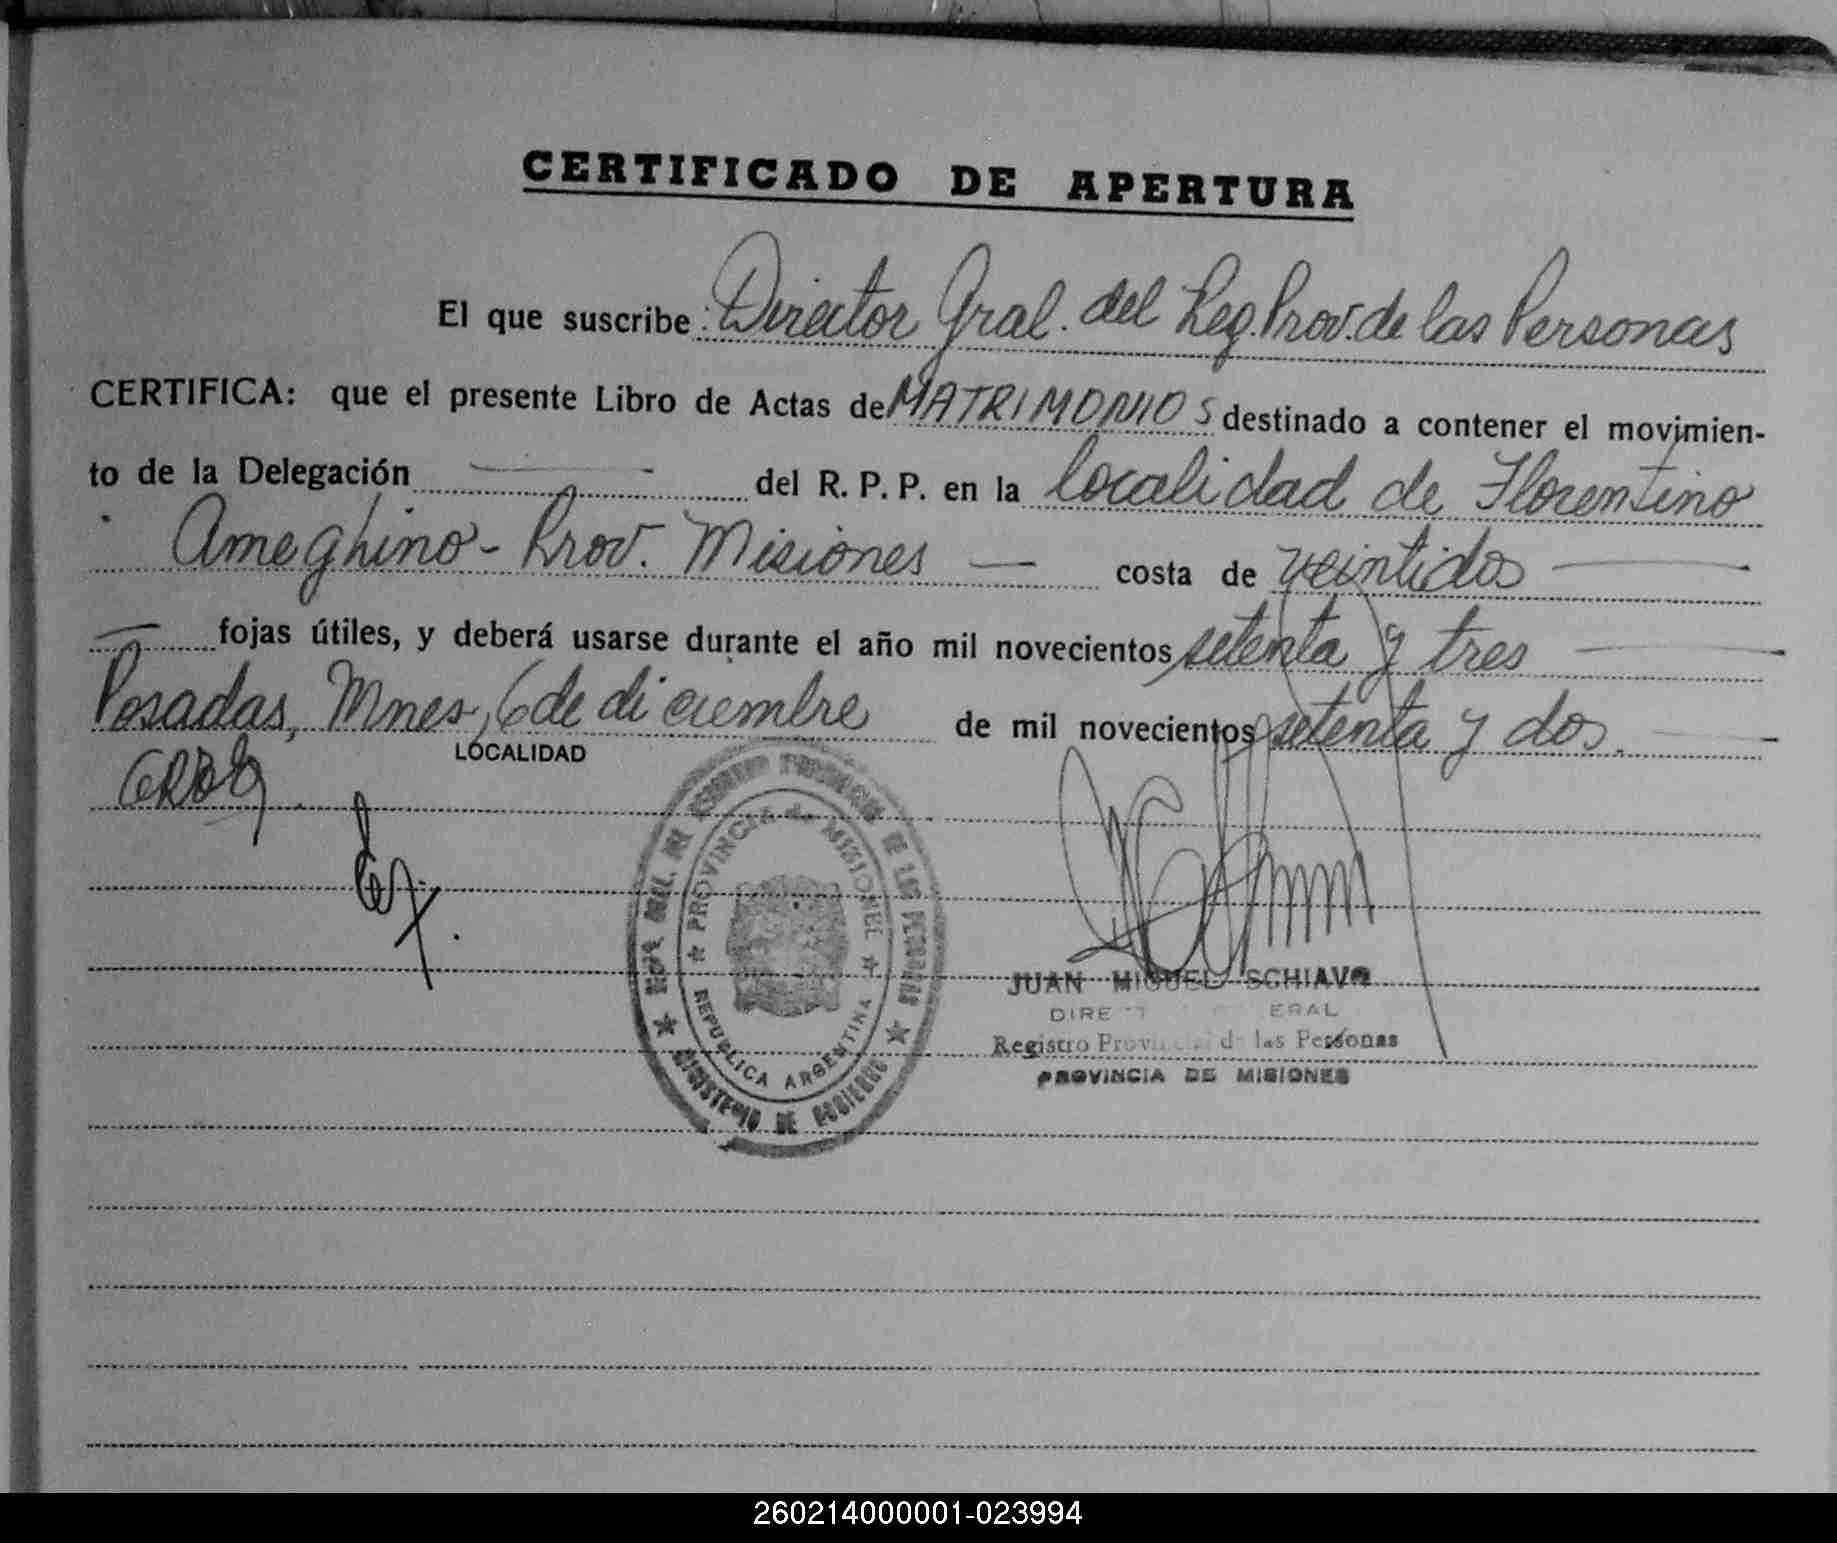 CERTIFICADO DE APERTURA
El que suscribe: Director Gral. del Reg. Prov. de las Personas
CERTIFICA: que el presente Libro de Actas de MATRIMONIOS destinado a contener el movimien-
to de la Delegación — del R. P. P. en la localidad de Florentino
Ameghino - Prov. Misiones — costa de veintidos —
— fojas útiles, y deberá usarse durante el año mil novecientos setenta y tres —
Posadas, Mnes, 6 de diciembre de mil novecientos setenta y dos. —
LOCALIDAD
PROVINCIA de MISIONES
REPUBLICA ARGENTINA
MINISTERIO DE GOBIERNO
JUAN MIGUEL SCHIAVO
DIRECTOR GENERAL
Registro Provincial de las Personas
PROVINCIA DE MISIONES
260214000001-023994